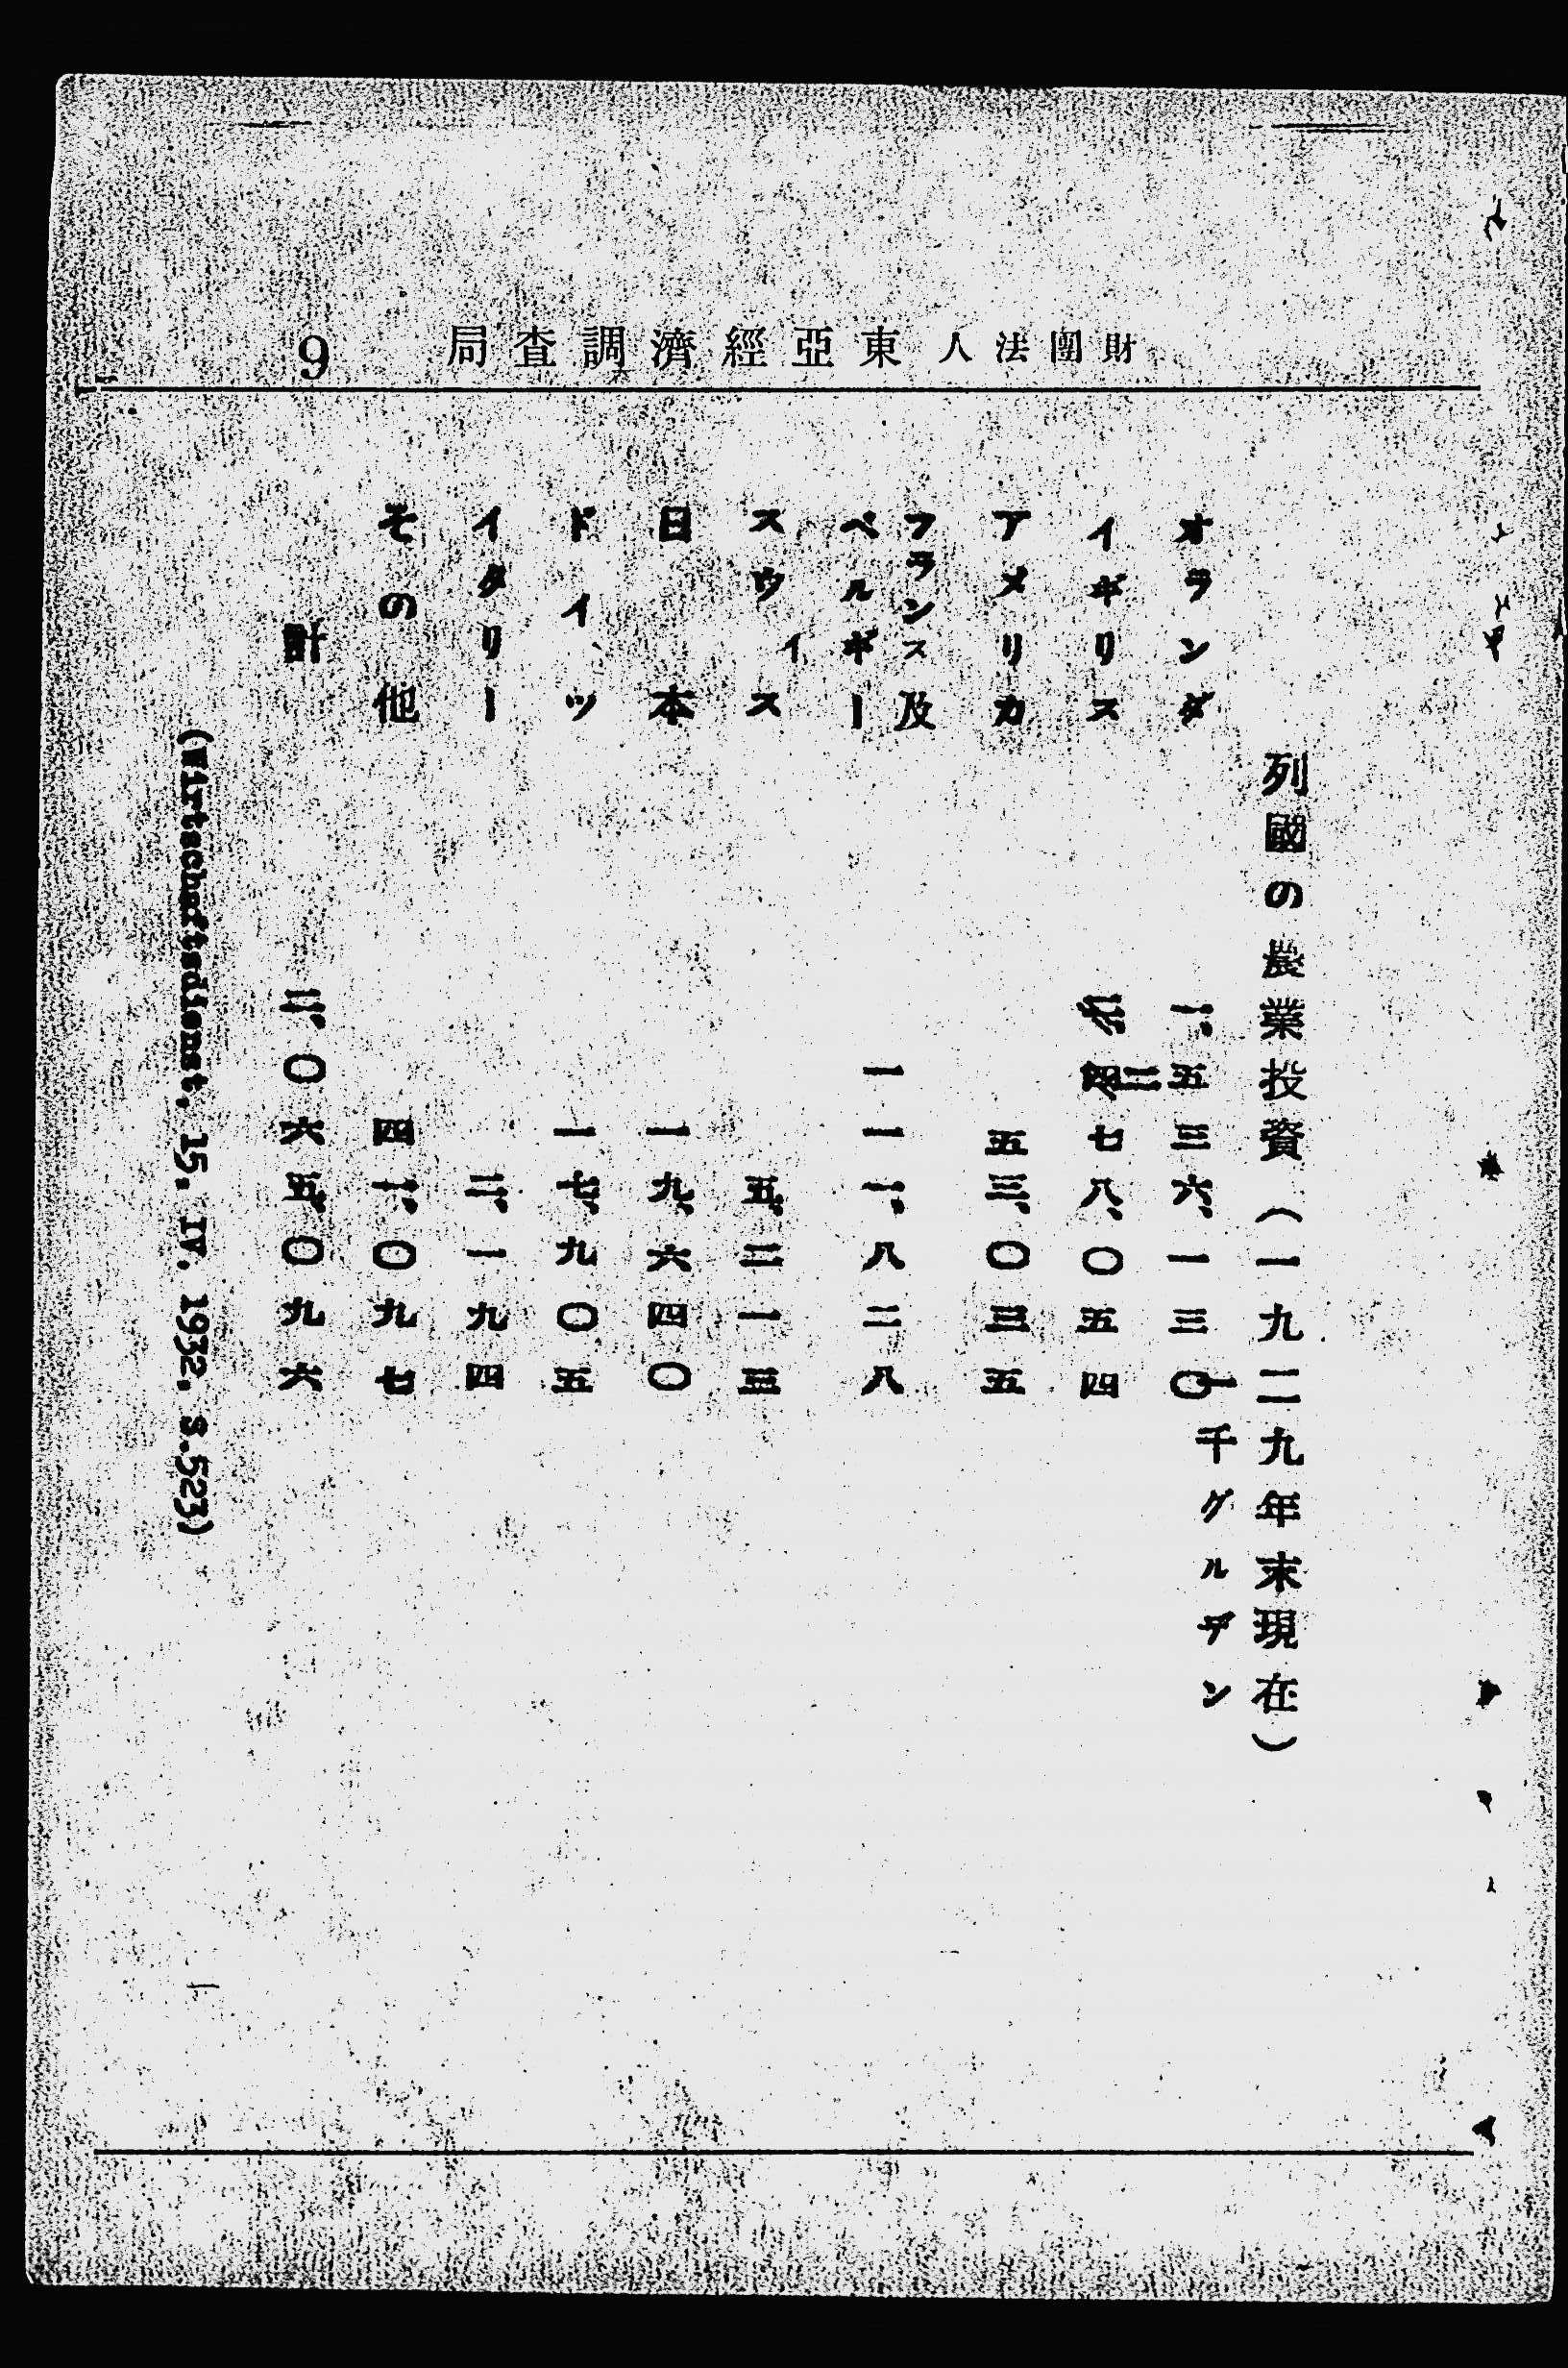 財團法人 東亞經濟調査局
9
列國の農業投資(一九二九年末現在)
一千グルデン
オランダ 一、五三六、一三〇
イギリス 一、二七八、〇五四
アメリカ 五三、〇三五
フランス及
ベルギー 一一一、八二八
スウィス 五、二一三
日本 一九、六四〇
ドイツ 一七、九〇五
イタリー 二、一九四
その他 四一、〇九七
計 三、〇六五、〇九六
(Wirtschaftsdienst, 15. IV. 1932. S.523)